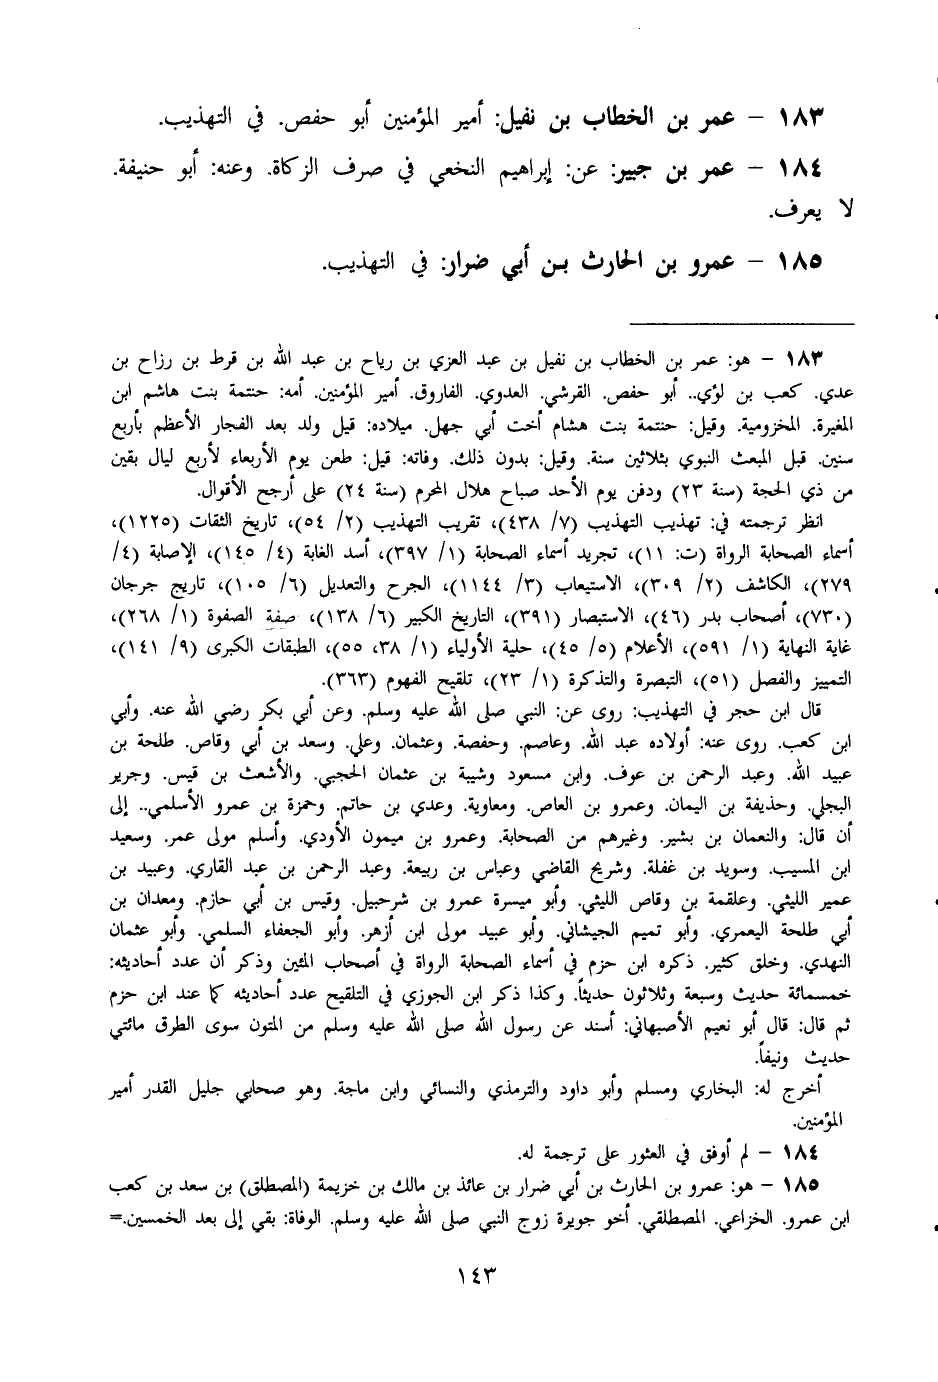 ١٨٣ – عمر بن الخطاب بن نفيل: أمير المؤمنين أبو حفص. في التهذيب.
١٨٤ – عمر بن جبير: عن: إبراهيم النخعي في صرف الزكاة. وعنه: أبو حنيفة.
لا يعرف.
١٨٥ – عمرو بن الحارث بن أبي ضرار: في التهذيب.
١٨٣ – هو: عمر بن الخطاب بن نفيل بن عبد العزي بن رياح بن عبد الله بن قرط بن رزاح بن
عدي. كعب بن لؤي.. أبو حفص. القرشي. العدوي. الفاروق. أمير المؤمنين. أمه: حنتمة بنت هاشم ابن
المغيرة. المخزومية. وقيل: حنتمة بنت هشام أخت أبي جهل. ميلاده: قيل ولد بعد الفجار الأعظم بأربع
سنين. قبل المبعث النبوي بثلاثين سنة. وقيل: بدون ذلك. وفاته: قيل: طعن يوم الأربعاء لأربع ليال بقين
من ذي الحجة (سنة ٢٣) ودفن يوم الأحد صباح هلال المحرم (سنة ٢٤) على أرجح الأقوال.
انظر ترجمته في: تهذيب التهذيب (٧/ ٤٣٨)، تقريب التهذيب (٢/ ٥٤)، تاريخ الثقات (١٢٢٥)،
أسماء الصحابة الرواة (ت: ١١)، تجريد أسماء الصحابة (١/ ٣٩٧)، أسد الغابة (٤/ ١٤٥)، الإصابة (٤/
٢٧٩)، الكاشف (٢/ ٣٠٩)، الاستيعاب (٣/ ١١٤٤)، الجرح والتعديل (٦/ ١٠٥)، تاريخ جرجان
(٧٣٠)، أصحاب بدر (٤٦)، الاستبصار (٣٩١)، التاريخ الكبير (٦/ ١٣٨)، صفة الصفوة (١/ ٢٦٨)،
غاية النهاية (١/ ٥٩١)، الأعلام (٥/ ٤٥)، حلية الأولياء (١/ ٣٨، ٥٥)، الطبقات الكبرى (٩/ ١٤١)،
التمييز والفصل (٥١)، التبصرة والتذكرة (١/ ٢٣)، تلقيح الفهوم (٣٦٣).
قال ابن حجر في التهذيب: روى عن: النبي صلى الله عليه وسلم. وعن أبي بكر رضي الله عنه. وأبي
ابن كعب. روى عنه: أولاده عبد الله. وعاصم. وحفصة. وعثمان. وعلي. وسعد بن أبي وقاص. طلحة بن
عبيد الله. وعبد الرحمن بن عوف. وابن مسعود وشيبة بن عثمان الحجبي. والأشعث بن قيس. وجرير
البجلي. وحذيفة بن اليمان. وعمرو بن العاص. ومعاوية. وعدي بن حاتم. وحمزة بن عمرو الأسلمي.. إلى
أن قال: والنعمان بن بشير. وغيرهم من الصحابة. وعمرو بن ميمون الأودي. وأسلم مولى عمر. وسعيد
ابن المسيب. وسويد بن غفلة. وشريح القاضي وعباس بن ربيعة. وعبد الرحمن بن عبد القاري. وعبيد بن
عمير الليثي. وعلقمة بن وقاص الليثي. وأبو ميسرة عمرو بن شرحبيل. وقيس بن أبي حازم. ومعدان بن
أبي طلحة اليعمري. وأبو تميم الجيشاني. وأبو عبيد مولى ابن أزهر. وأبو الجعفاء السلمي. وأبو عثمان
النهدي. وخلق كثير. ذكره ابن حزم في أسماء الصحابة الرواة في أصحاب المئين وذكر أن عدد أحاديثه:
خمسمائة حديث وسبعة وثلاثون حديثاً. وكذا ذكر ابن الجوزي في التلقيح عدد أحاديثه كما عند ابن حزم
ثم قال: قال أبو نعيم الأصبهاني: أسند عن رسول الله صلى الله عليه وسلم من المتون سوى الطرق مائتي
حديث ونيفاً.
أخرج له: البخاري ومسلم وأبو داود والترمذي والنسائي وابن ماجة. وهو صحابي جليل القدر أمير
المؤمنين.
١٨٤ – لم أوفق في العثور على ترجمة له.
١٨٥ – هو: عمرو بن الحارث بن أبي ضرار بن عائذ بن مالك بن خزيمة (المصطلق) بن سعد بن كعب
ابن عمرو. الخزاعي. المصطلقي. أخو جويرة زوج النبي صلى الله عليه وسلم. الوفاة: بقي إلى بعد الخمسين.=
١٤٣